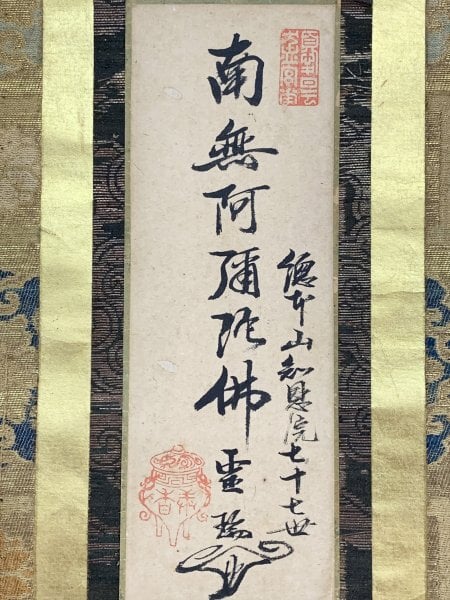 總本山知恩院七十七世
南無阿彌陀佛靈瑞